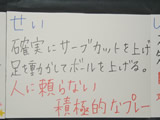 せい
確実にサーブカットを上げ
足を動かしてボールを上げる。
人に頼らない
積極的なプレー